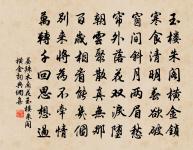 玉樓朱閣橫金鎖
寒食清明春欲破
窗間斜月兩眉愁
簾外落花雙淚墮
朝雲聚散真無那
百歲相看能幾個
別來將為不牽情
萬轉千回思想過
晏殊木蘭花玉樓朱閣
橫金鎖詞典網集